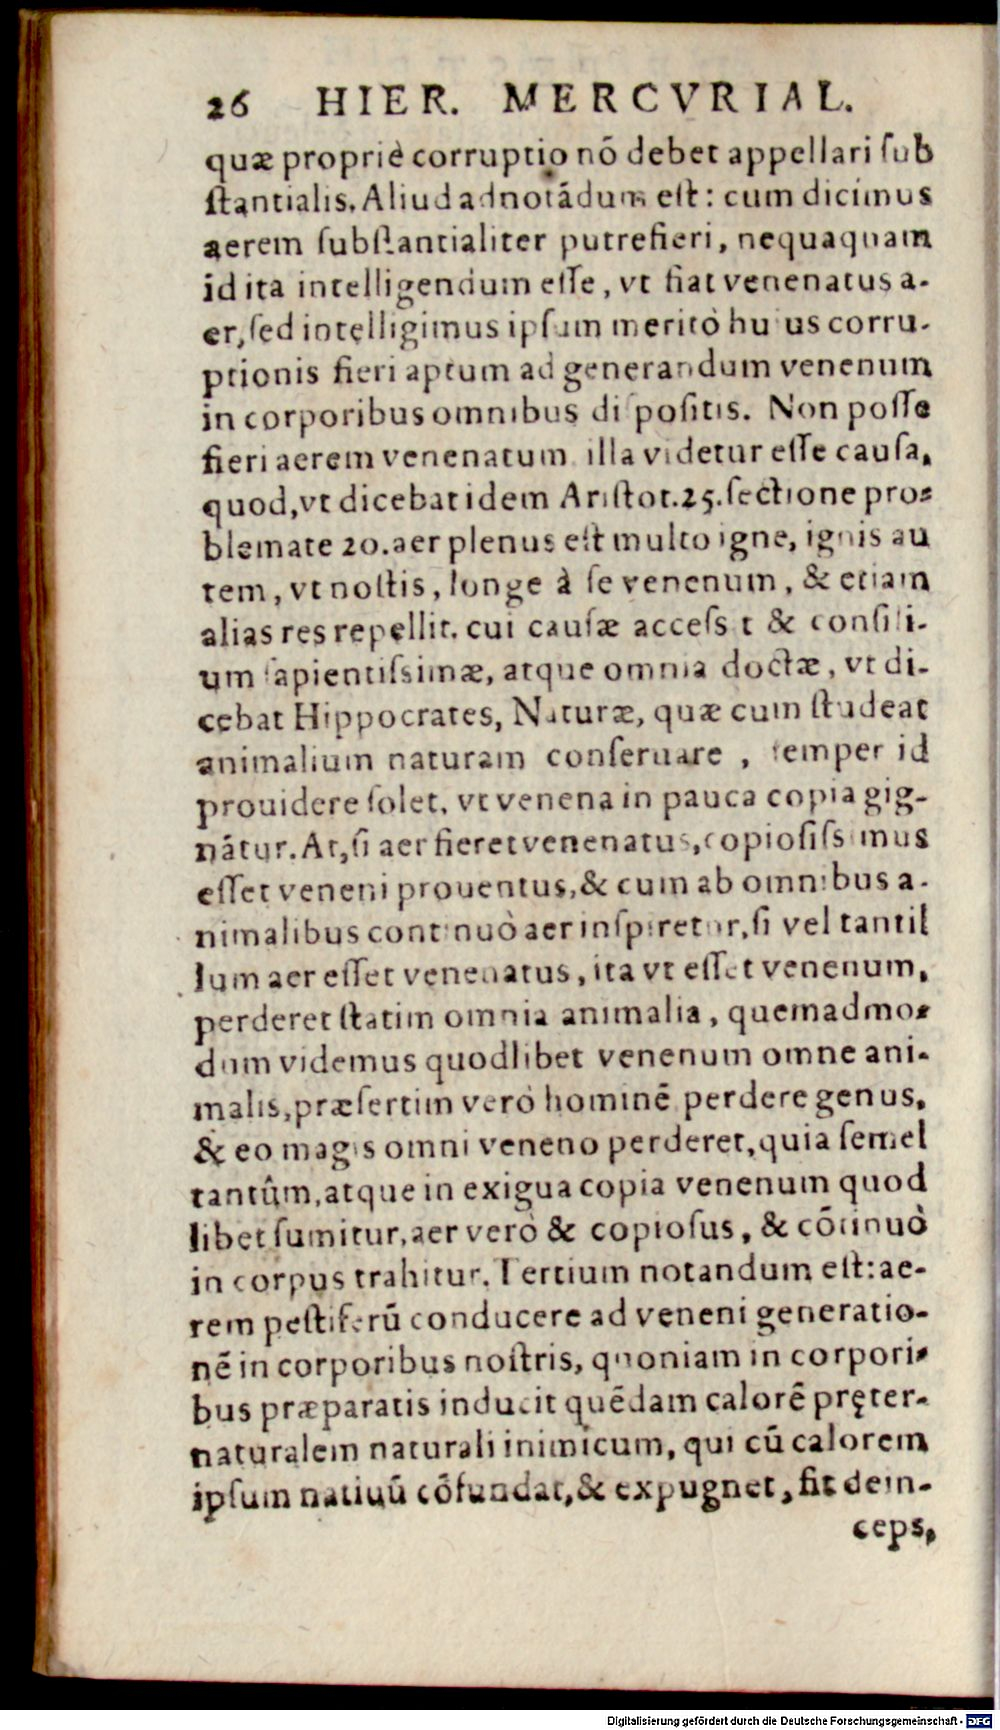 26 HIER. MERCVRIAL.
quæ propriè corruptio nõ debet appellari ſub
ſtantialis. Aliud adnotãdum eſt: cum dicimus
aerem ſubſtantialiter putrefieri, nequaquam
id ita intelligendum eſſe, vt fiat venenatus a-
er, ſed intelligimus ipſum meritò huius corru-
ptionis fieri aptum ad generandum venenum
in corporibus omnibus diſpoſitis. Non poſſe
fieri aerem venenatum illa videtur eſſe cauſa,
quod, vt dicebat idem Ariſtot. 25. ſectione pro-
blemate 20. aer plenus eſt multo igne, ignis au
tem, vt noſtis, longe à ſe venenum, & etiam
alias res repellit. cui cauſæ acceſsit & conſili-
um ſapientiſsimæ, atque omnia doctæ, vt di-
cebat Hippocrates, Naturæ, quæ cum ſtudeat
animalium naturam conſeruare, ſemper id
prouidere ſolet, vt venena in pauca copia gig-
nãtur. At, ſi aer fieret venenatus, copioſiſsimus
eſſet veneni prouentus, & cum ab omnibus a-
nimalibus continuò aer inſpiretur, ſi vel tantil
lum aer eſſet venenatus, ita vt eſſet venenum,
perderet ſtatim omnia animalia, quemadmo-
dum videmus quodlibet venenum omne ani-
malis, præſertim verò hominẽ perdere genus,
& eo magis omni veneno perderet, quia ſemel
tantûm, atque in exigua copia venenum quod
libet ſumitur, aer verò & copioſus, & cõtinuò
in corpus trahitur. Tertium notandum eſt: ae-
rem peſtiferũ conducere ad veneni generatio-
nẽ in corporibus noſtris, quoniam in corpori-
bus præparatis inducit quẽdam calorẽ pręter-
naturalem naturali inimicum, qui cũ calorem
ipſum natiuũ cõfundat, & expugnet, fit dein-
ceps,
Digitalisierung gefördert durch die Deutsche Forschungsgemeinschaft - DFG